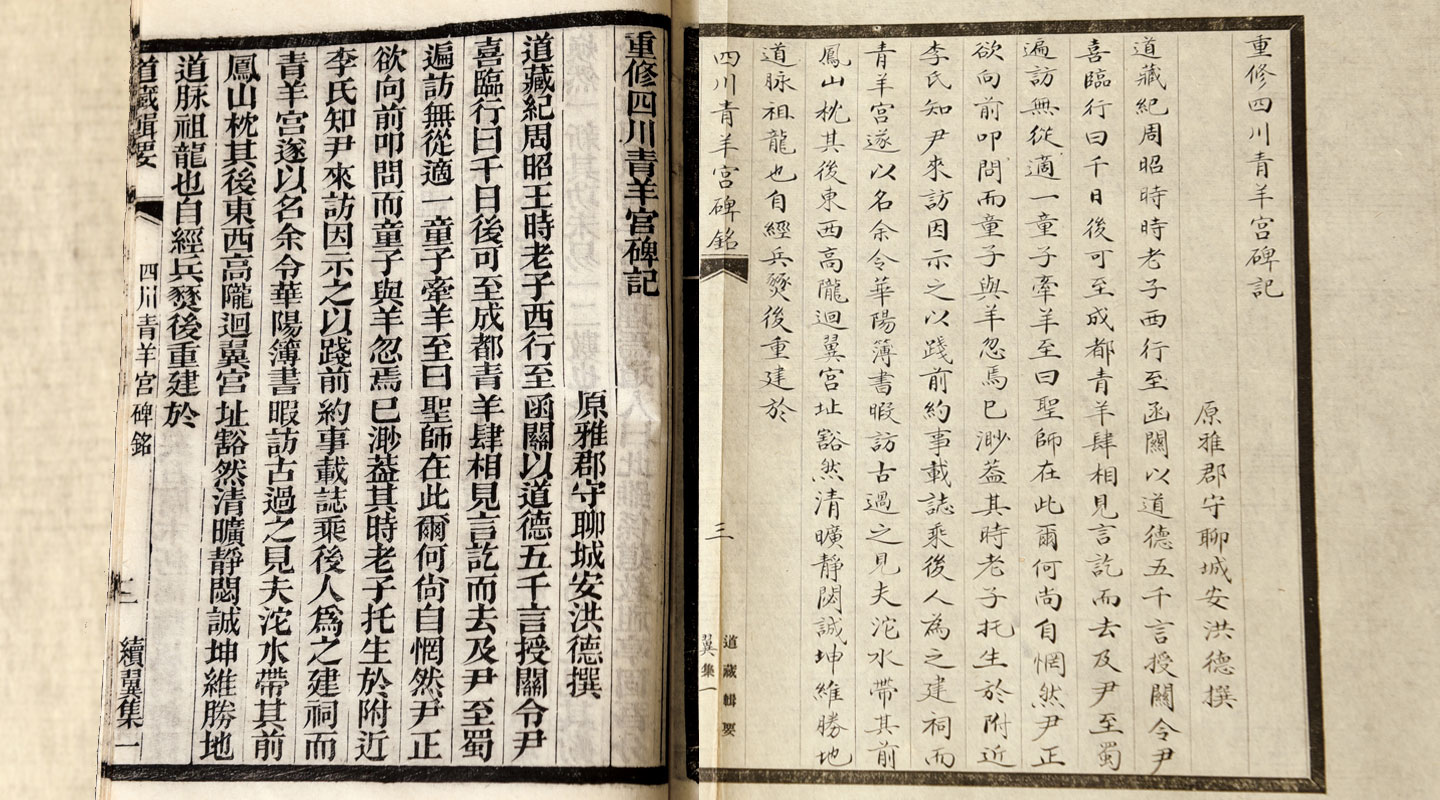 重修四川青羊宮碑記
原雅郡守聊城安洪德撰
道藏紀周昭時時老子西行至函關以道德五千言授關令尹
喜臨行曰千日後可至成都青羊肆相見言訖而去及尹至蜀
遍訪無從適一童子牽羊至曰聖師在此爾何尚自惘然尹正
欲向前叩問而童子與羊忽焉已渺葢其時老子托生於附近
李氏知尹來訪因示之以踐前約事載誌乘後人為之建祠而
青羊宮遂以名余令華陽簿書暇訪古過之見夫沱水帶其前
鳳山枕其後東西高隴迴翼宮址豁然清曠靜閟誠坤維勝地
道脉祖龍也自經兵燹後重建於
四川青羊宮碑銘
三
道藏輯要
翼集一
重修四川青羊宮碑記
原雅郡守聊城安洪德撰
道藏紀周昭王時老子西行至函關以道德五千言授關令尹
喜臨行曰千日後可至成都青羊肆相見言訖而去及尹至蜀
遍訪無從適一童子牽羊至曰聖師在此爾何尙自惘然尹正
欲向前叩問而童子與羊忽焉已渺葢其時老子托生於附近
李氏知尹來訪因示之以踐前約事載誌乘後人爲之建祠而
青羊宮遂以名余令華陽簿書暇訪古過之見夫沱水帶其前
鳳山枕其後東西高隴迴翼宮址豁然清曠靜閟誠坤維勝地
道脉祖龍也自經兵燹後重建於
道藏輯要
四川青羊宮碑銘
二
續翼集一